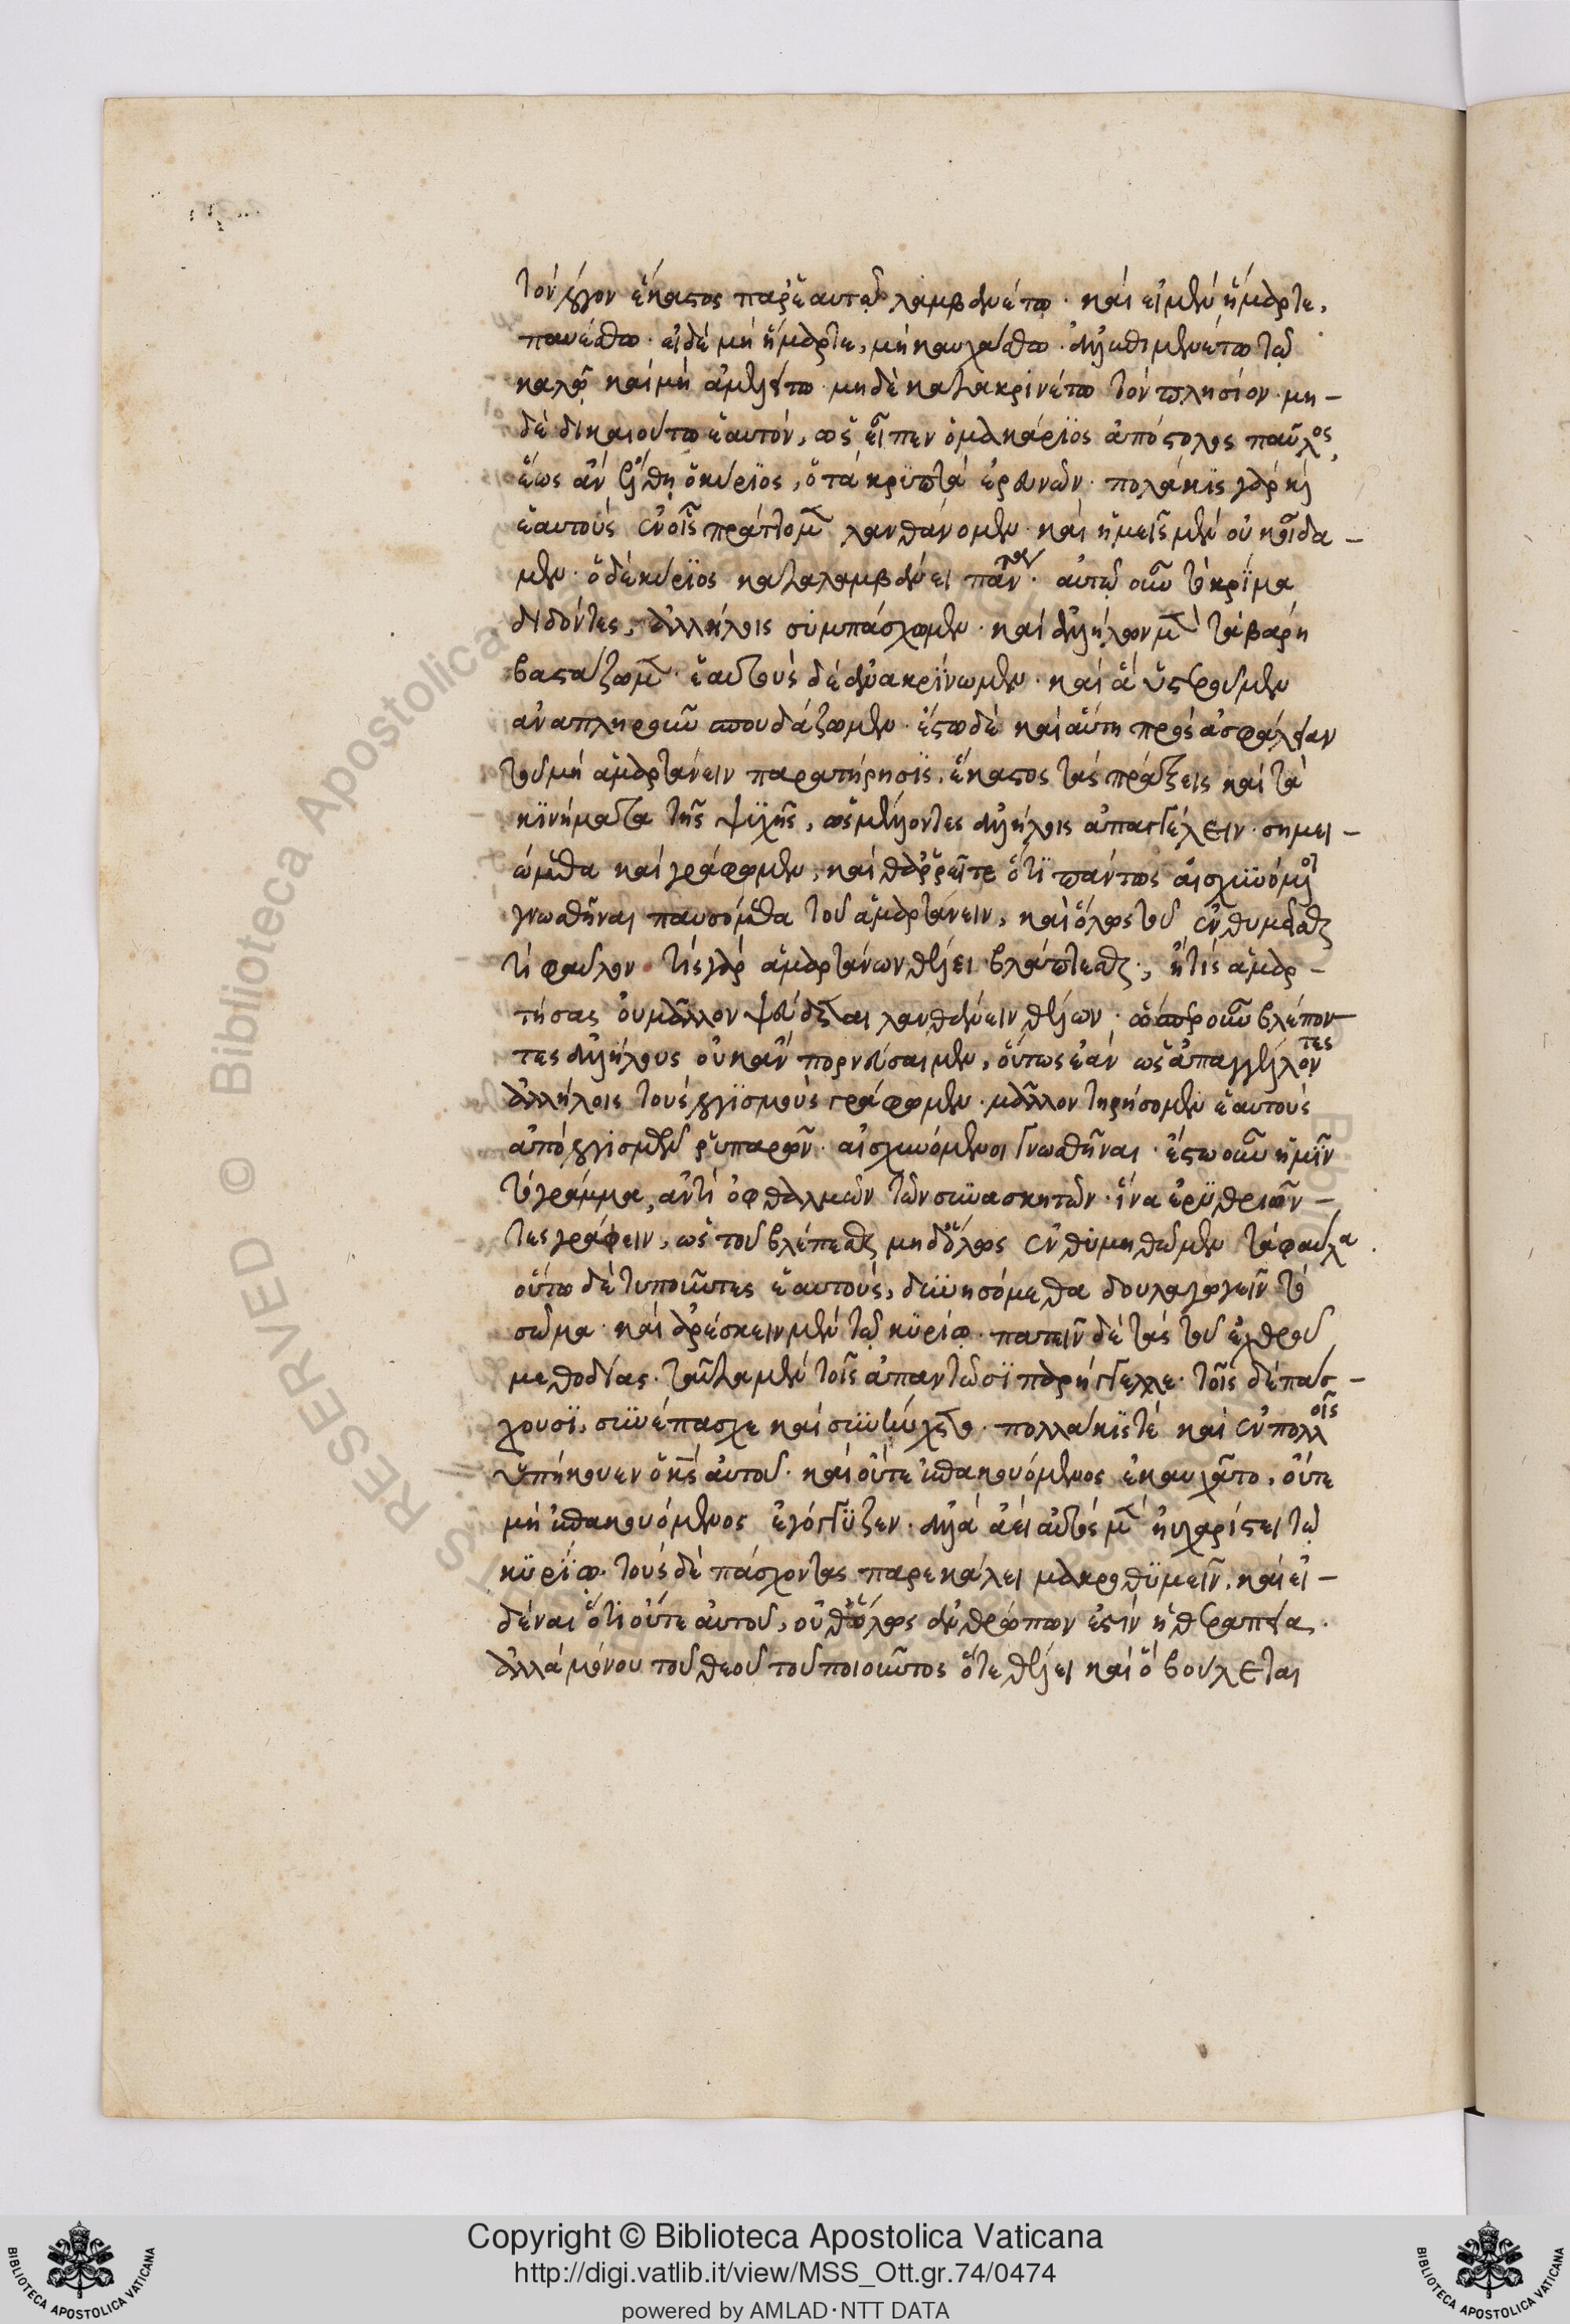 τὸν λόγον ἕκαστος παρ' ἑαυτῷ λαμβανέτω· καὶ εἰ μὲν ἥμαρτε,
παυέσθω· εἰ δὲ μὴ ἥμαρτε, μὴ καυχάσθω· ἀλλ' ἐπιμενέτω τῷ
καλῷ καὶ μὴ ἀμελείτω· μηδὲ κατακρινέτω τὸν πλησίον· μη-
δὲ δικαιούτω ἑαυτόν, ὡς εἶπεν ὁ μακάριος ἀπόστολος παῦλος,
ἕως ἂν ἔλθῃ ὁ κύριος, ὁ τὰ κρυπτὰ ἐρευνῶν· πολάκις γὰρ καὶ
ἑαυτοὺς ἐν οἷς πράττομεν λανθάνομεν· καὶ ἡμεῖς μὲν οὐκ οἴδα-
μεν· ὁ δὲ κύριος καταλαμβάνει πάντα· αὐτῷ οὖν τὸ κρῖμα
διδόντες, ἀλλήλοις συμπάσχωμεν· καὶ ἀλλήλων τὰ βάρη
βαστάζωμεν· ἑαυτοὺς δὲ ἀνακρίνωμεν· καὶ ἃ ὑστεροῦμεν
ἀναπληροῦν σπουδάζωμεν· ἔστω δὲ καὶ αὕτη πρὸς ἀσφάλειαν
τοῦ μὴ ἁμαρτάνειν παρατήρησις. ἕκαστος τὰς πράξεις καὶ τὰ
κινήματα τῆς ψυχῆς, ὡς μέλλοντες ἀλλήλοις ἀπαγγέλειν· σημει-
ώμεθα καὶ γράφωμεν, καὶ θαρρεῖτε ὅτι πάντως αἰσχυνόμενοι
γνωσθῆναι παυσόμεθα τοῦ ἁμαρτάνειν, καὶ ὅλως τοῦ ἐνθυμεῖσθαι
τι φαῦλον· τίς γὰρ ἁμαρτάνων θέλει βλάπτεσθαι; ἢ τίς ἁμαρ-
τήσας οὐ μᾶλλον ψεύδεται λανθάνειν θέλων· ὥσπερ οὖν βλέπον-
τες ἀλλήλους οὐκ ἂν πορνεύσαιμεν, οὕτως ἐὰν ὡς ἀπαγγέλλοντες
ἀλλήλοις τοὺς λογισμοὺς γράφωμεν· μᾶλλον τηρήσομεν ἑαυτοὺς
ἀπὸ λογισμῶν ῥυπαρῶν· αἰσχυνόμενοι γνωσθῆναι· ἔστω οὖν ἡμῖν
τὸ γράμμα, ἀντὶ ὀφθαλμῶν τῶν συνασκητῶν· ἵνα ἐρυθριῶν-
τες γράφειν, ὡς τοῦ βλέπεσθαι μηδ' ὅλως ἐνθυμηθῶμεν τὰ φαῦλα
οὕτω δὲ τυποῦντες ἑαυτούς, δυνησόμεθα δουλαγωγεῖν τὸ
σῶμα· καὶ ἀρέσκειν μὲν τῷ κυρίῳ· πατεῖν δὲ τὰς τοῦ ἐχθροῦ
μεθοδίας· ταῦτα μὲν τοῖς ἀπαντῶσι παρήγγελλε· τοῖς δὲ πάσ-
χουσι, συνέπασχε καὶ συνεύχετο· πολλάκις τε καὶ ἐν πολλοῖς
ὑπήκουεν ὁ κς αὐτοῦ· καὶ οὔτε ἐπακουόμενος ἐκαυχᾶτο, οὔτε
μὴ ἐπακουόμενος ἐγόγγυζεν· ἀλλὰ ἀεὶ αὐτὸς μὲν ηὐχαρίστει τῷ
κυρίῳ· τοὺς δὲ πάσχοντας παρεκάλει μακροθυμεῖν, καὶ εἰ-
δέναι ὅτι οὔτε αὐτοῦ, οὔθ' ὅλως ἀνθρώπων ἐστὶν ἡ θεραπεία,
ἀλλὰ μόνου τοῦ θεοῦ τοῦ ποιοῦντος ὅτε θέλει καὶ ὃ βούλεται
Copyright © Biblioteca Apostolica Vaticana
http://digi.vatlib.it/view/MSS_Ott.gr.74/0474
powered by AMLAD·NTT DATA